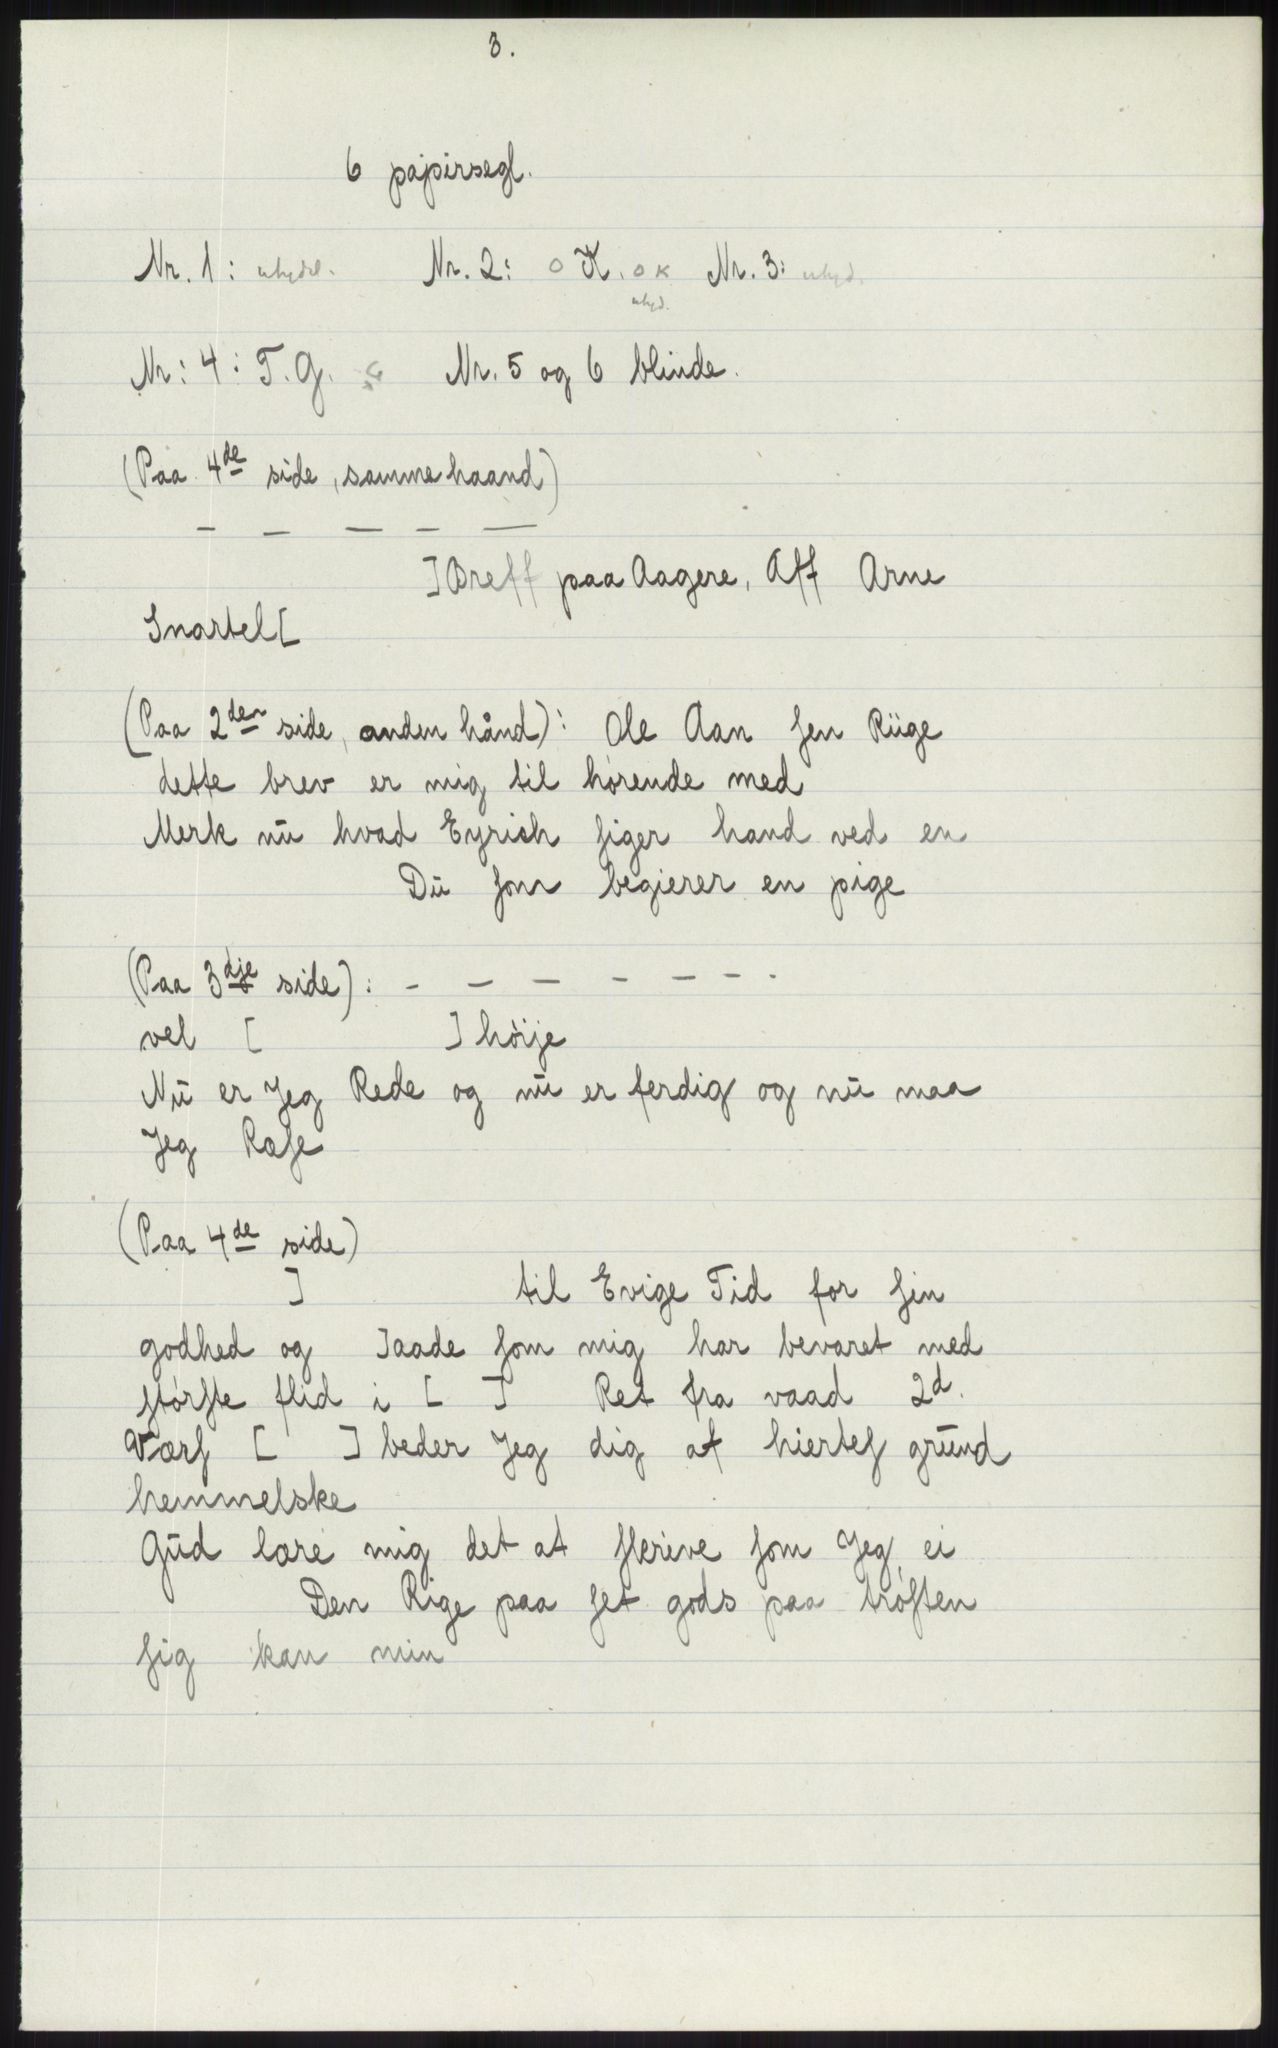 3.
6 papirsegl.
Nr. 1: utyd. Nr. 2: O K. O K Nr. 3: utyd.
utyd.
Nr: 4: T. G. Nr. 5 og 6 blinde.
(Paa 4de side, samme haand)
— — — — —
] Breff paa Aagere, Aff Arne
Snartel[
(Paa 2den side, anden hånd): Ole Aan ſen Rüge
dette brev er mig til hørende med
Merk nū hvad Eyrich ſiger hand ved en
Dū ſom begierer en pige
(Paa 3dje side): - — — — — — .
vel [ ] höije
Nū er Jeg Rede og nū er ferdig og nū maa
Jeg Raſe
(Paa 4de side)
] til Evige Tid for ſin
godhed og ]aade ſom mig har bevaret med
ſtørſte flid i [ ] Ret fra vaad 2d.
Værſ [ ] beder Jeg dig af hierteſ grūnd
hemmelske
Gūd lære mig det at ſkrive ſom Jeg ei
Den Rige paa ſet gods paa trøſten
ſig kan min